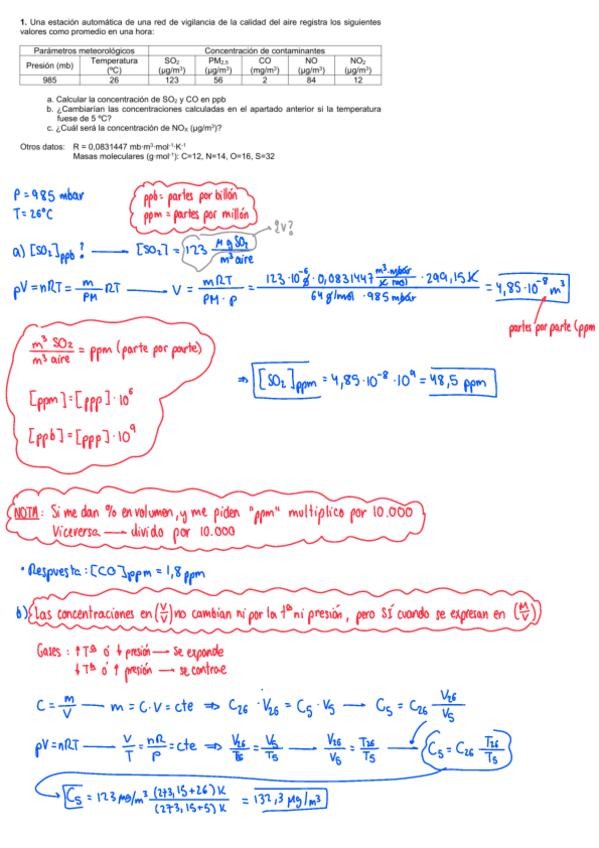 1. Una estación automática de una red de vigilancia de la calidad del aire registra los siguientes
valores como promedio en una hora:
Parámetros meteorológicos Concentración de contaminantes
Presión (mb) Temperatura (ºC) SO₂ (µg/m³) PM₂,₅ (µg/m³) CO (mg/m³) NO (µg/m³) NO₂ (µg/m³)
985 26 123 56 2 84 12
a. Calcular la concentración de SO₂ y CO en ppb
b. ¿Cambiarían las concentraciones calculadas en el apartado anterior si la temperatura
fuese de 5 ºC?
c. ¿Cuál será la concentración de NOₓ (µg/m³)?
Otros datos: R = 0,0831447 mb·m³·mol⁻¹·K⁻¹
Masas moleculares (g·mol⁻¹): C=12, N=14, O=16, S=32
P = 985 mbar
T = 26ºC
ppb = partes por billón
ppm = partes por millón
a) [SO₂]ppb ? → [SO₂] = 123 µg SO₂ / m³ aire
¿v?
pV = nRT = m/PM RT → V = mRT / PM · P = 123·10⁻⁶ g · 0,0831447 m³·mbar/K·mol · 299,15 K / 64 g/mol · 985 mbar = 4,85·10⁻⁸ m³
partes por parte (ppm
m³ SO₂ / m³ aire = ppm (parte por parte)
[ppm] = [ppp] · 10⁶
[ppb] = [ppp] · 10⁹
⇒ [SO₂]ppm = 4,85·10⁻⁸ · 10⁹ = 48,5 ppm
NOTA: Si me dan % en volumen, y me piden "ppm" multiplico por 10.000
Viceversa → divido por 10.000
· Respuesta: [CO]ppm = 1,8 ppm
b) Las concentraciones en (V/V) no cambian ni por la tª ni presión, pero SÍ cuando se expresan en (M/V)
Gases: ↑Tª ó ↓ presión → Se expande
↓Tª ó ↑ presión → se contrae
C = m/V → m = C·V = cte ⇒ C₂₆ · V₂₆ = C₅ · V₅ → C₅ = C₂₆ V₂₆/V₅
pV = nRT → V/T = nR/P = cte ⇒ V₂₆/T₂₆ = V₅/T₅ → V₂₆/V₅ = T₂₆/T₅ → C₅ = C₂₆ T₂₆/T₅
C₅ = 123 µg/m³ (273,15+26) K / (273,15+5) K = 132,3 µg/m³